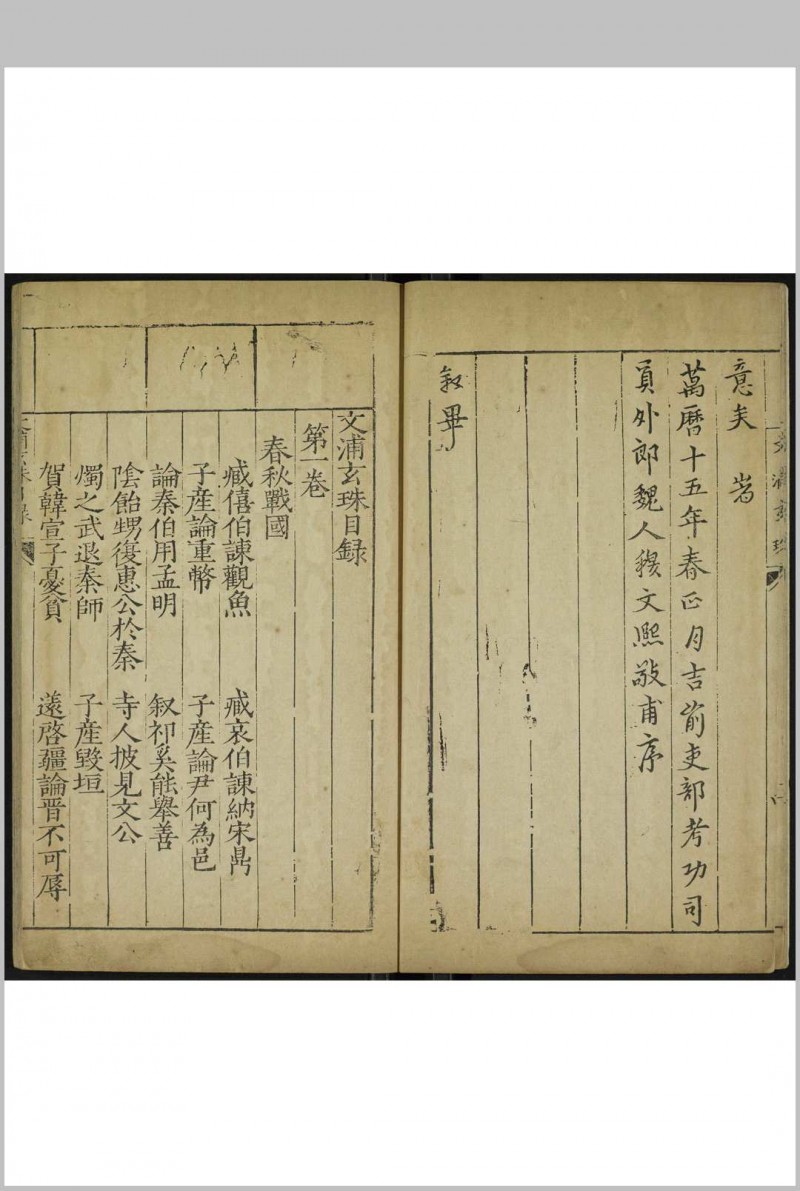 意矣 
萬曆十五年春正月吉前吏部考功司
員外郎魏人穆文熙敬甫序
叙畢
文浦玄珠目録
第一卷
春秋戰國
臧僖伯諫觀魚 臧哀伯諫納宋鼎
子産論重幣 子産論尹何為邑
論秦伯用孟明 叙祁奚能舉善
陰飴甥復惠公於秦 寺人披見文公
燭之武退秦師 子産毀垣
賀韓宣子憂貧 薳啓疆論晋不可辱